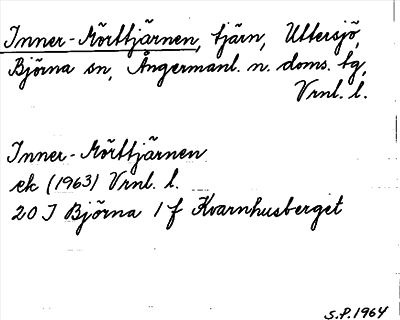 Inner-Mörttjärnen, tjärn, Uttersjö,
Björna sn, Ångermanl. n. doms. tg,
Vrnl. l.
Inner-Mörttjärnen
ek (1963) Vrnl. l.
20 J Björna 1 f Kvarnhusberget
S.P. 1964